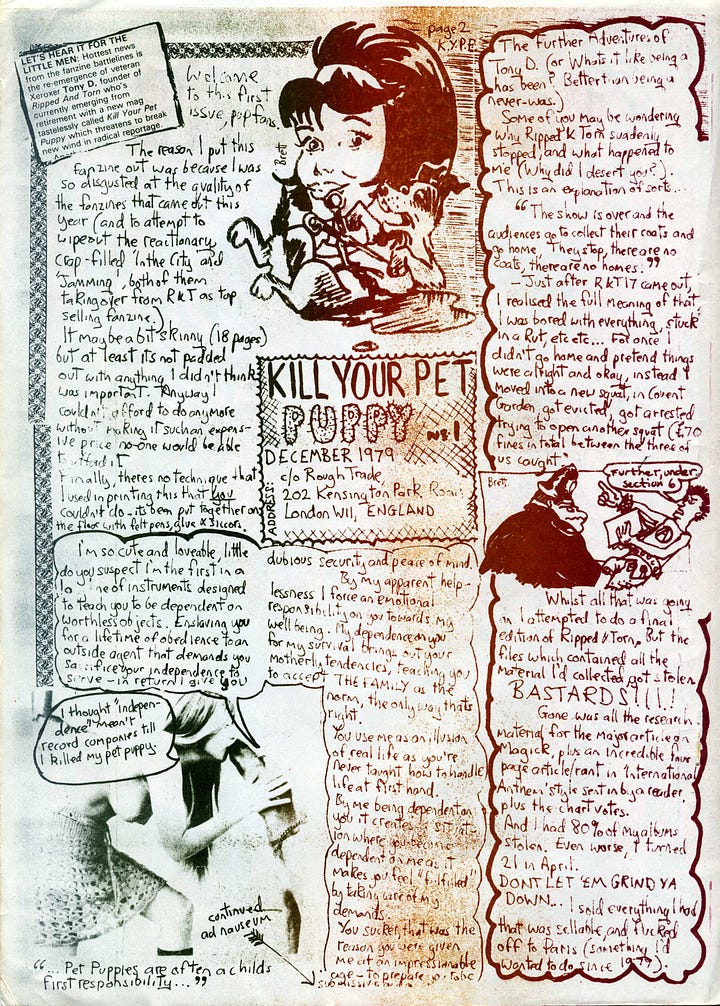 LET'S HEAR IT FOR THE
LITTLE MEN: Hottest news
from the fanzine battlelines is
the re-emergence of veteran
Xeroxer Tony D, founder of
Ripped And Torn who's
currently emerging from
retirement with a new mag
tastelessly called Kill Your Pet
Puppy which threatens to break
new wind in radical reportage.
Welcome
to this first
issue, poptons.
The reason I put this
fanzine out was because I was
so disgusted at the quality of
the fanzines that came out this
year (and to attempt to
wipeout the reactionary
crap-filled 'In the City' and
'Jamming', both of them
taking over from R&T as top
selling fanzine.)
It may be a bit skinny (18 pages)
but at least its not padded
out with anything I didn't think
was important. Anyway I
couldn't afford to do anymore
without making it such an expens-
ive price no-one would be able
to afford it
Finally, theres no technique that
I used in printing this that you
couldn't do - its been put together on
the floor with felt pens, glue & siccors.
page 2
K.Y.P.P.
Brett
KILL YOUR PET
PUPPY No. 1
DECEMBER 1979
ADDRESS:
c/o Rough Trade,
202 Kensington Park Road,
London W11, ENGLAND
I'm so cute and loveable, little
do you suspect I'm the first in a
long line of instruments designed
to teach you to be dependent on
worthless objects. Enslaving you
for a lifetime of obedience to an
outside agent that demands you
sacrifice your independence to
serve - in return I give you
dubious security and peace of mind.
By my apparent help-
lessness I force an emotional
responsibility on you towards my
well being. My dependence on you
for my survival brings out your
motherly tendencies, teaching you
to accept THE FAMILY as the
norm, the only way thats
right.
You use me as an illusion
of real life as you're
never taught how to handle
life at first hand.
By me being dependent on
you it creates a situat-
ion where you become
dependent on me as it
makes you feel "fulfilled"
by taking care of my
demands.
You sucker, that was the
reason you were given
me at an impressionable
age - to prepare you to be
submissive
I thought "indepen-
dence" meant
record companies till
I killed my pet puppy.
continued
ad nauseum
"... Pet Puppies are often a childs
first responsibility..."
The Further Adventures of
Tony D. (or Whats it like being a
has been? Better than being a
never-was.)
Some of you may be wondering
why Ripped & Torn suddenly
stopped, and what happened to
me (Why did I desert you?).
This is an explanation of sorts...
"The show is over and the
audiences go to collect their coats and
go home. They stop, there are no
coats, there are no homes."
- Just after R&T 17 came out,
I realised the full meaning of that
I was bored with everything, stuck
in a Rut, etc etc... For once I
didn't go home and pretend things
were alright and okay, instead I
moved into a new squat, in Covent
Garden, got evicted, got arrested
trying to open another squat (£70
fines in total between the three of
us caught.
Brett.
Further, under
section 6
Whilst all that was going
on I attempted to do a final
edition of Ripped & Torn. But the
files which contained all the
material I'd collected got stolen.
BASTARDS!!!!
Gone was all the research
material for the major article on
Magick, plus an incredible four
page article/rant in 'International
Anthem' style sent in by a reader
plus the chart votes.
And I had 80% of my albums
stolen. Even worse, I turned
21 in April.
DONT LET 'EM GRIND YA
DOWN... I sold everything I had
that was sellable, and fucked
off to Paris (something I'd
wanted to do since 1979).